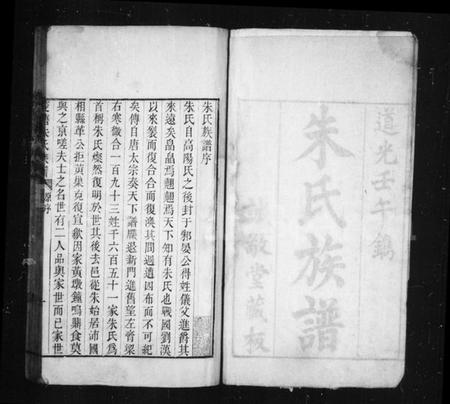 道光壬午鐫
朱氏族譜
敬堂藏板
朱氏族譜序
朱氏自高陽氏之後封于邾晏公得姓儀父進爵其
來遠矣晶晶焉翹翹焉天下知有朱氏也戰國劉漢
以來裂而復合合而復渙其間遇遺因布而不可紀
矣傳自唐太宗奏天下譜牒退新門進舊望左膏梁
右寒微合一百九十三姓千六百五十一家朱氏為
首稱朱氏燦然復明於世其後去邑從朱始居沛國
相縣革公拒黃巢克復宜歙因家黃墩鐘鳴鼎食莫
與之京嗟夫士之名世有二人品與家世而已家世
朱氏族譜
序